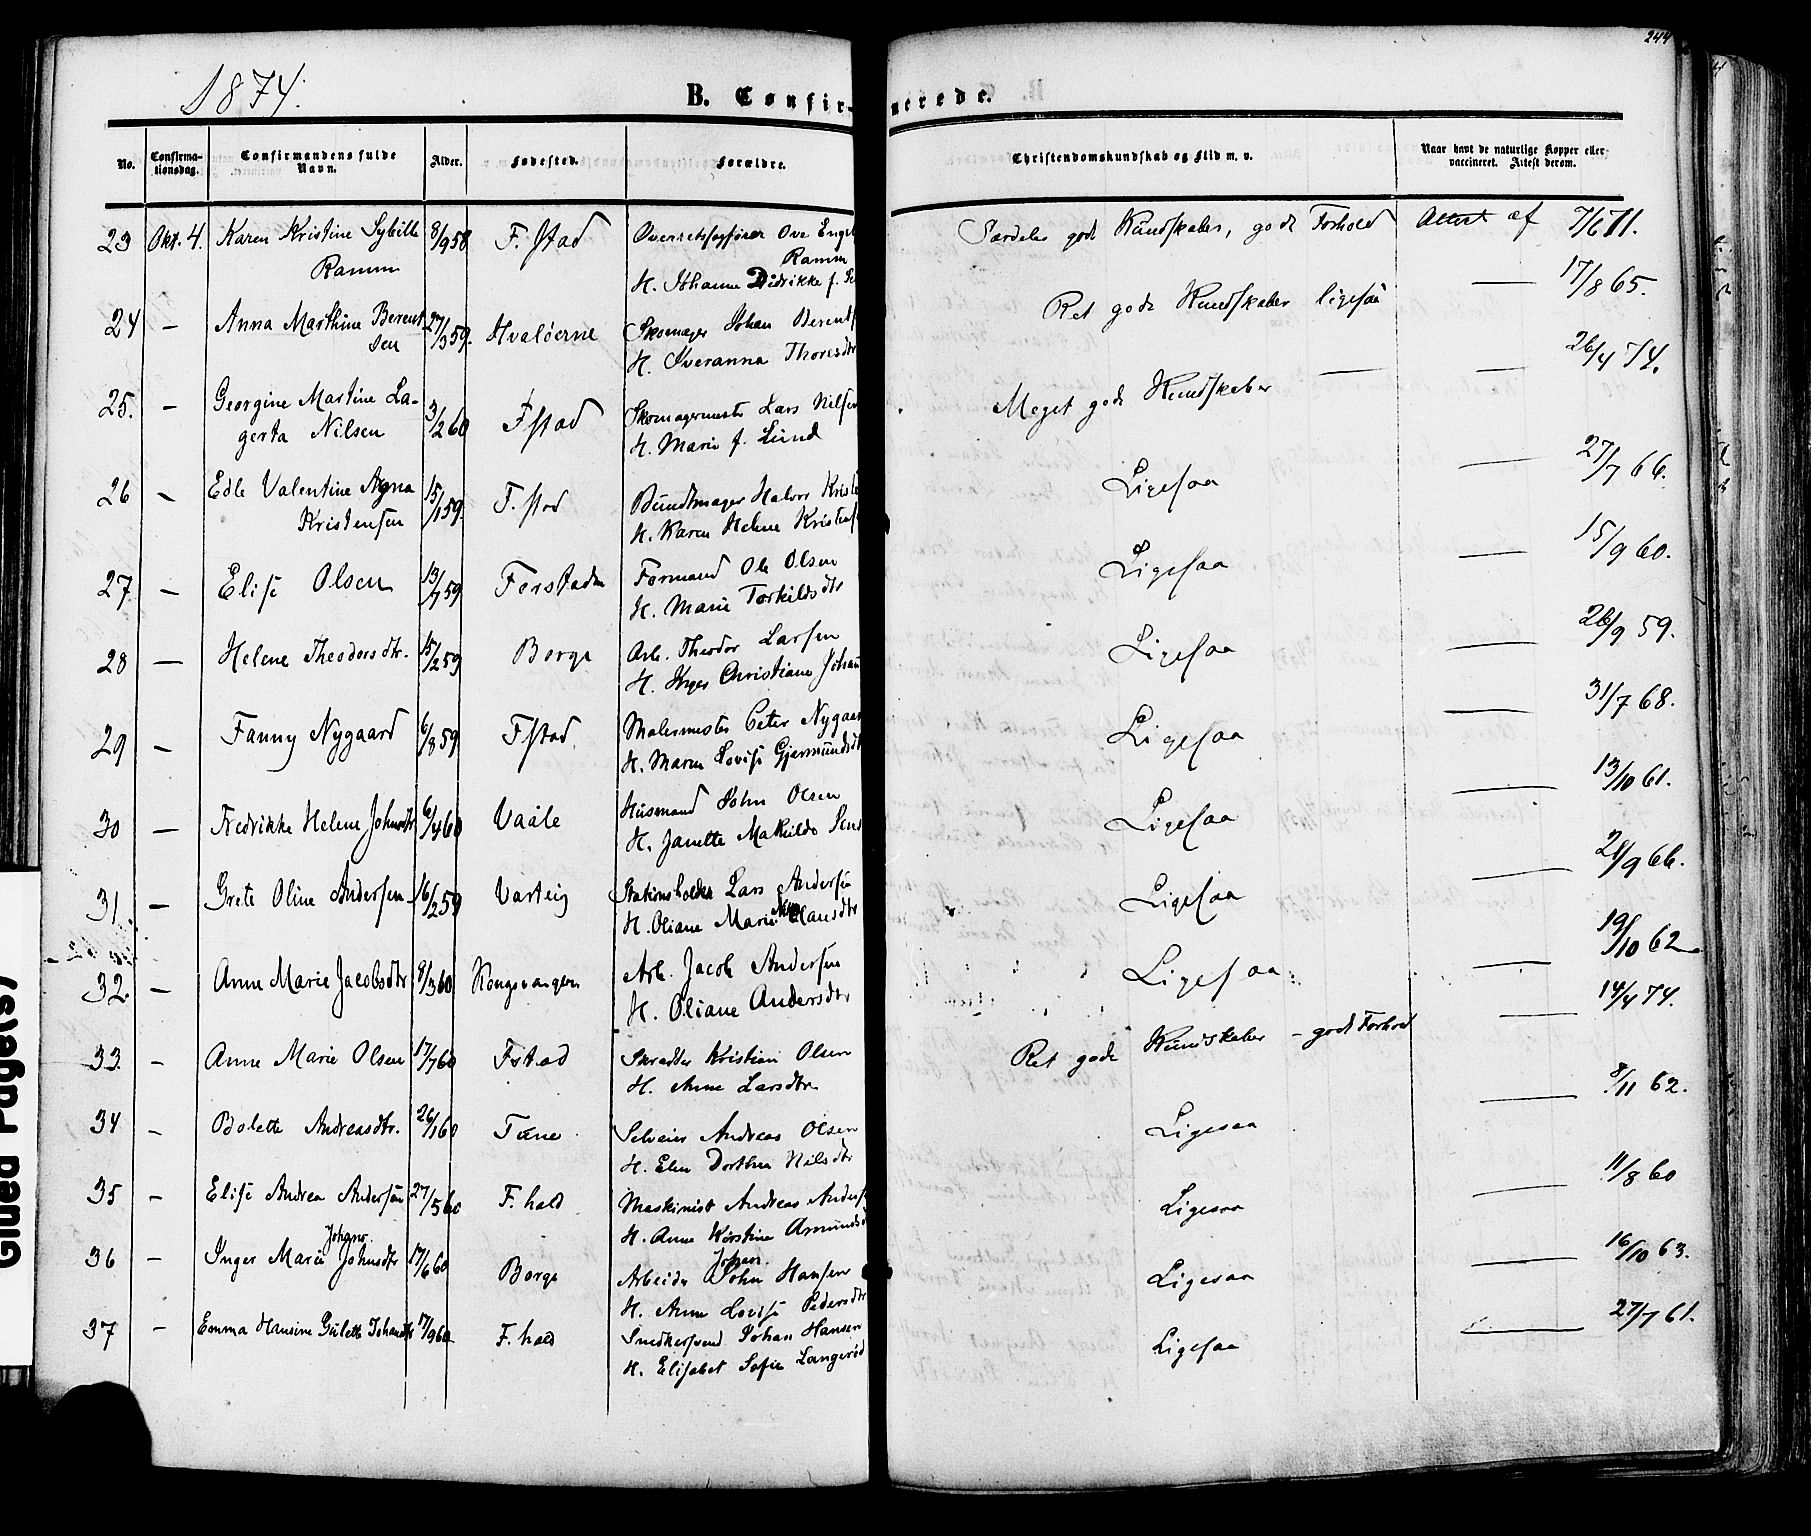 244
1874.
B. Confirmerede.
No. Confirmationsdag. Confirmandens fulde Navn. Alder. Fødested. Forældre. Christendomskundskab og Flid m. v. Naar havt de naturlige Kopper eller vaccineret. Attest derom.
23 Okt. 4. Karen Kristine Sybille 8/9 58 F. stad Overretssagfører Ove Særdeles gode Kundskaber, godt Forhold Attest af 7/6 71.
Ramm Ramm
H. Johanne Didrikke f.
24 — Anna Marthine Berent 27/3 59. Hvaløerne Skomager Johan Ret gode Kundskaber ligesaa — 17/8 65.
sen H. Iveranna Thoresdtr
25. — Georgine Martine La- 3/2 60 Fstad Skomagermester Lars Nilsen Meget gode Kundskaber — — 26/4 74.
gerta Nilsen H. Marie f. Lund
26 — Edle Valentine Agna 15/1 59. F. stad Buntmager Halvor Ligesaa — 27/7 66.
Kristensen H. Karen Helene
27. — Elise Olsen 13/7 59 Forstaden Formand Ole Olsen Ligesaa — 15/9 60.
H. Marie Torkildsdtr
28 — Helene Theodorsdtr. 15/2 59 Borge Arb. Theodor Larsen Ligesaa — 26/9 59.
H. Inger Christiane
29 — Fanny Nygaard 6/8 59 Fstad Malermester Peter Ligesaa — 31/7 68.
H. Maren Lovise
30 — Fredrikke Helene Johnsdtr 6/4 60 Vaale Husmand John Olsen Ligesaa — 13/10 61.
H. Janette Mathilde
31. — Grete Oline Andersen 16/2 59 Varteig Stationsholder Lars Andersen Ligesaa — 21/9 66.
H. Oliane Marie
32. — Anne Marie Jacobsdtr 8/3 60 Kongsvangen Arb. Jacob Andersen Ligesaa — 19/10 62
H. Oliane Andersdtr
33. — Anne Marie Olsen 17/7 60 Fstad Skrædder Kristian Olsen Ret gode Kundskaber — godt Forhold — 14/4 74.
H. Anne Larsdtr
34 — Bolette Andreasdtr. 26/1 60 Tune Selveier Andreas Olsen Ligesaa — 8/11 62.
H. Elen Dorthea Nilsdtr
35 — Elise Andrea Andersen 27/5 60 F. hald Maskinist Andreas Ligesaa — 11/8 60
H. Anne Kirstine
Johans.
36 — Inger Marie Johnsdtr 17/6 60 Borge Arbeider John Hansen Ligesaa — 16/10 63.
Johan.
H. Anne Lovise Pedersdtr
37 — Emma Hansine Gulette 17/9 60 F. hald Snedkersvend Johan Hansen Ligesaa — 27/7 61.
H. Elisabet Sofie Langerød
Glued Page(s)